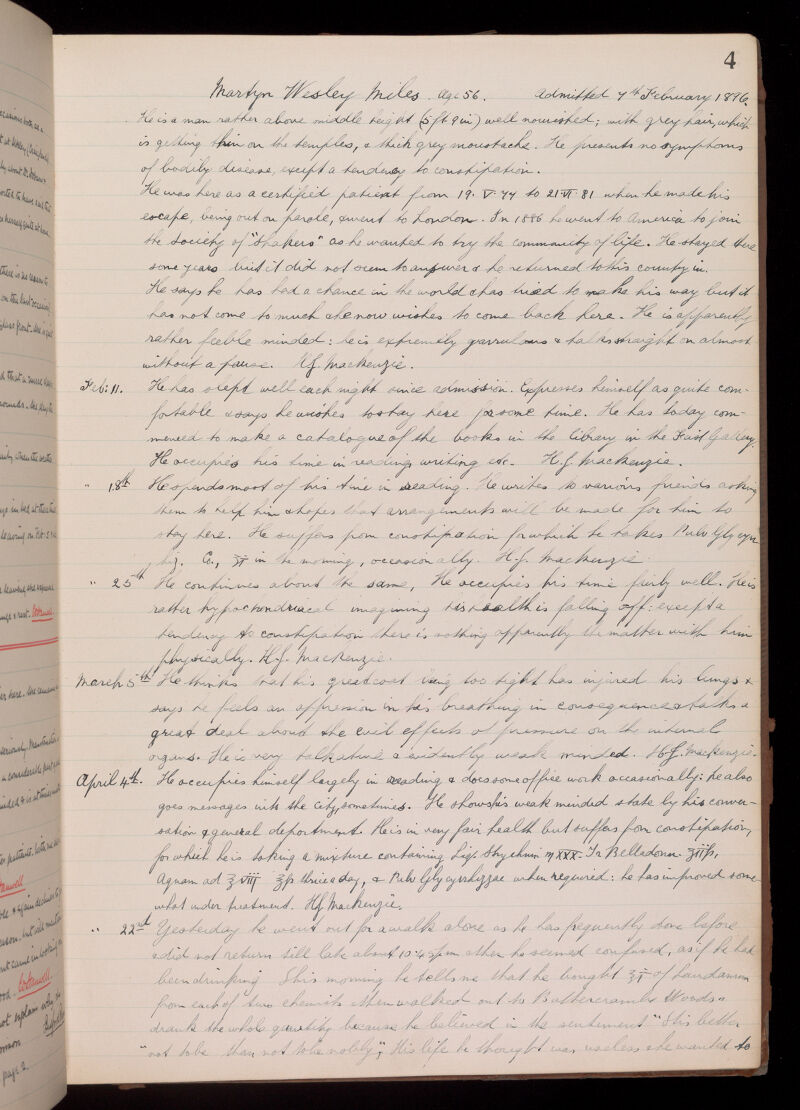 4
Martyn Wesley Miles. Age 56. Admitted 7th February 1896.
He is a man rather above middle height (5 ft 9 in) well nourished; with grey hair, which
is getting thin on the temples, a thick grey moustache. He presents no symptoms
of bodily disease, except a tendency to constipation.
He was here as a certified patient from 19. V. 77 to 21. VI. 81 when he made his
escape, being out on parole, & went to London. In 1886 he went to America to join
the Society of "Shakers" as he wanted to try the community of life. He stayed there
some years but it did not seem to answer & he returned to his country in.
He says he has had a chance in the world & has tried to make his way but it
has not come to much & he now wishes to come back here. He is apparently
rather feeble minded: he is extremely garrulous & talks straight on almost
without a pause. H.J. Mackenzie.
Feb: 11. He has slept well each night since admission. Expresses himself as quite com-
fortable & says he wishes to stay here for some time. He has today com-
menced to make a catalogue of the books in the library in the East Gallery.
He occupies his time in reading, writing etc. H.J. Mackenzie.
" 18th He spends most of his time in reading. He writes to various friends asking
them to help him & hopes that arrangements will be made for him to
stay here. He suffers from constipation for which he takes Pulv Glycyrr
hiz. Co., in the morning, occasionally. H.J. Mackenzie.
" 25th He continues about the same, He occupies his time fairly well. He is
rather hypochondriacal imagining his health is falling off: except a
tendency to constipation there is nothing apparently the matter with him
physically. H.J. Mackenzie.
March 5th He thinks that his great coat being too tight has injured his lungs &
says he feels an oppression in his breathing in consequence & talks a
great deal about the evil effects of pressure on the internal
organs. He is very talkative & evidently weak minded. H.J. Mackenzie.
April 4th. He occupies himself largely in reading & does some office work occasionally: he also
goes messages into the city, sometimes. He shows his weak minded state by his conver-
sation & general deportment. He is in very fair health but suffers from constipation,
for which he is taking a mixture containing Liq Strychnin ♏XXX. Tr Belladonn. ʒiiſs,
Aquam ad ℥viii ℥ſs thrice a day, & Pulv Glycyrrhizae when required: he has improved some
what under treatment. H.J. Mackenzie.
" 22nd Yesterday he went out for a walk alone as he has frequently done before
& did not return till late about 10.45 pm when he seemed confused, as if he had
been drinking. This morning he tells me that he bought ℥i of laudanum
from each of two chemists & then walked out to Buttercrambe Woods &
drank the whole quantity because he believed in the sentiment "Tis better
"not to be than not to be nobly"; His life he thought was useless & he wanted to
page 2